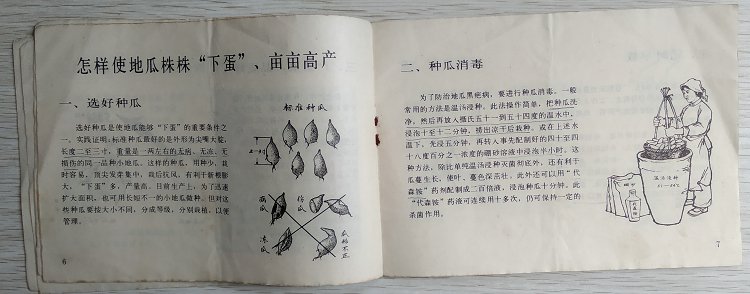 怎样使地瓜株株“下蛋”、亩亩高产
一、选好种瓜
选好种瓜是使地瓜能够“下蛋”的重要条件之
一。实践证明，标准种瓜最好的是外形为尖嘴大腚，
长度二至三寸，重量是一两左右的无病、无冻、无
损伤的同一品种小地瓜。这样的种瓜，用种少，栽
时容易，顶尖发芽集中，栽后抗风，有利于新根膨
大，“下蛋”多，产量高。目前生产上，为了迅速
扩大面积，也可用长短不一的小地瓜做种。但对这
些种瓜要按大小不同，分成等级，分别栽植，以便
管理。
标准种瓜
病瓜
伤瓜
冻瓜
6
二、种瓜消毒
为了防治地瓜黑疤病，要进行种瓜消毒。一般
常用的方法是温汤浸种。此法操作简单，把种瓜洗
净，然后再放入摄氏五十一到五十四度的温水中，
浸泡十至十二分钟，捞出凉干后栽种。或在上述水
温下，先浸五分钟，再转入事先配制好的四十至四
十八度百分之一浓度的硼砂溶液中浸泡半小时。这
种方法，除比单纯温汤浸种灭菌彻底外，还有利于
瓜蔓生长，使叶、蔓色深茁壮。此外还可以用“代
森铵”药剂配制成二百倍液，浸泡种瓜十分钟。此
“代森铵”药液可连续用十多次，仍可保持一定的
杀菌作用。
温汤浸种
51—54℃
7